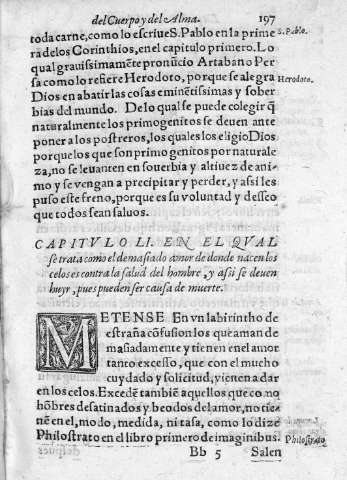 del Cuerpo y del Alma. 197
toda carne, como lo escriue S. Pablo en la prime
S. Pablo.
ra de los Corinthios, en el capitulo primero. Lo
qual grauissimamẽte pronũcio Artabano Per
sa como lo refiere Herodoto, porque se alegra
Herodoto.
Dios en abatir las cosas eminẽtissimas y sober
bias del mundo. De lo qual se puede colegir q̃
naturalmente los primogenitos se deuen ante
poner a los postreros, los quales los eligio Dios
porque los que son primogenitos por naturale
za, no se leuanten en souerbia y altiuez de ani-
mo y se vengan a precipitar y perder, y assi les
puso este freno, porque es su voluntad y desseo
que todos sean saluos.
CAPITVLO LI. EN EL QVAL
se trata como el demasiado amor de donde nacen los
celos es contra la salud del hombre, y assi se deuen
huyr, pues pueden ser causa de muerte.
METENSE En vn labirintho de
estraña cõfusion los que aman de
masiadamente y tienen en el amor
tanto excesso, que con el mucho
cuydado y solicitud, vienen a dar
en los celos. Excedẽ tambiẽ aquellos que como
hõbres desatinados y beodos del amor, no tie-
nẽ en el, modo, medida, ni tasa, como lo dize
Philostrato en el libro primero de imaginibus.
Philostrato
Bb 5 Salen